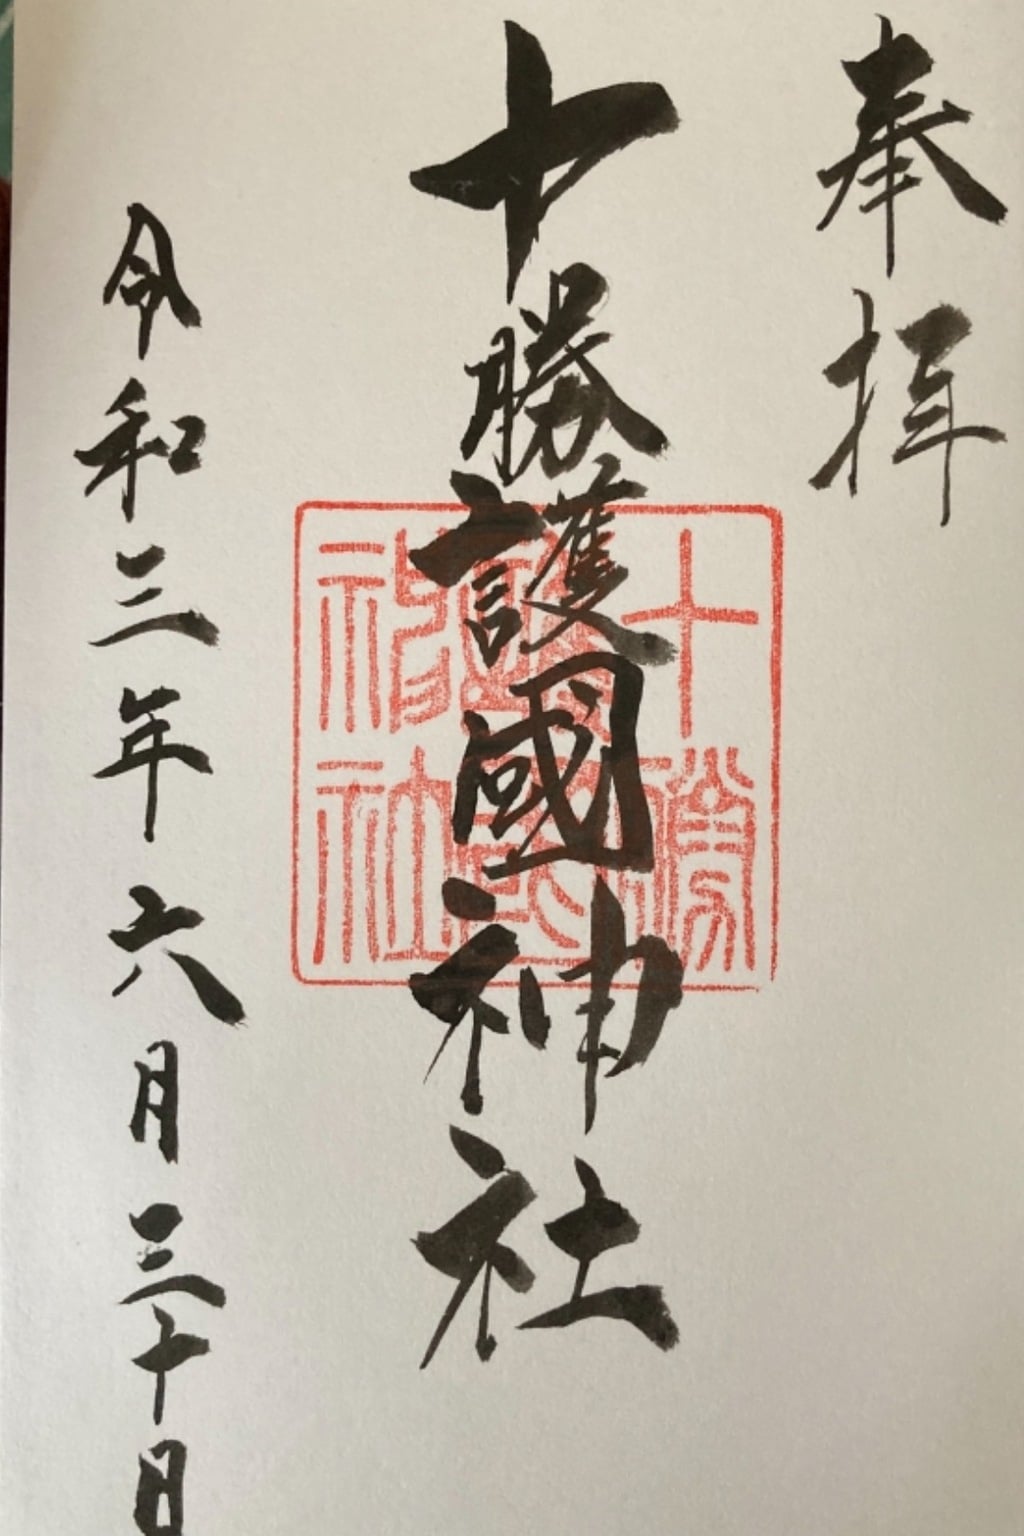 奉拝
十勝護國神社
十勝
護國
神社
令和三年六月三十日